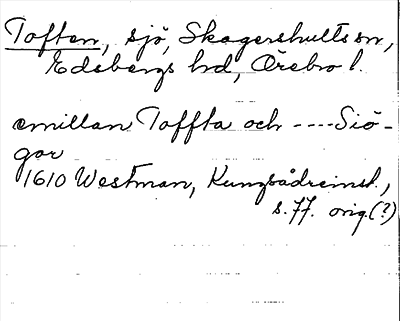 Toften, sjö, Skagershults sn,
Edsbergs hd, Örebro l.
emillan Toffta och ---- Siö-
gar
1610 Westman, Kungsådreinst.,
s. 77. orig. (?)